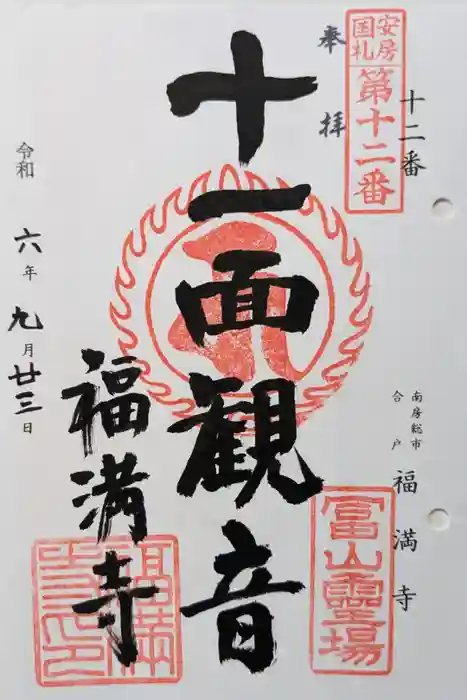 安房
国札
第十二番
十二番
奉拝
十一面観音
南房総市
合戸
福満寺
冨山靈場
福満寺
令和六年九月廿三日